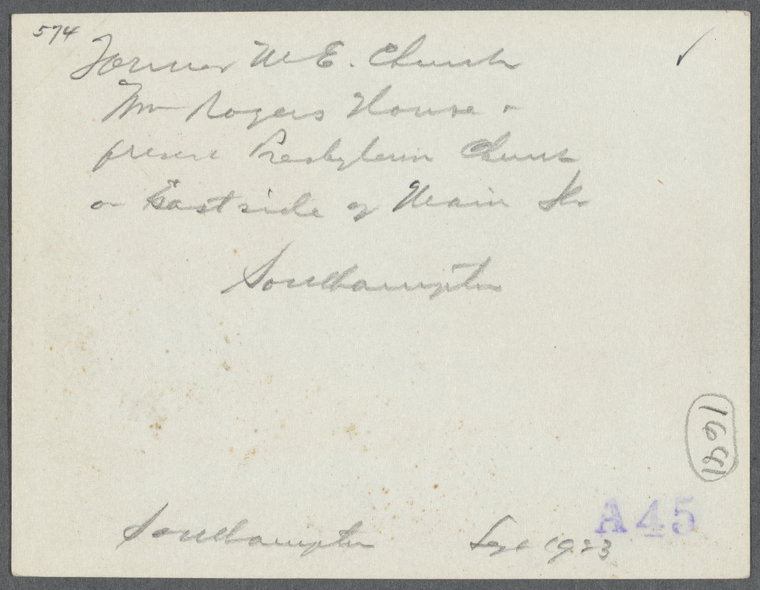 574
Former M E. Church
Wm Rogers House &
present Presbyterian Church
on East side of Main St.
Southampton
1681
A45
Southampton Sept 1923